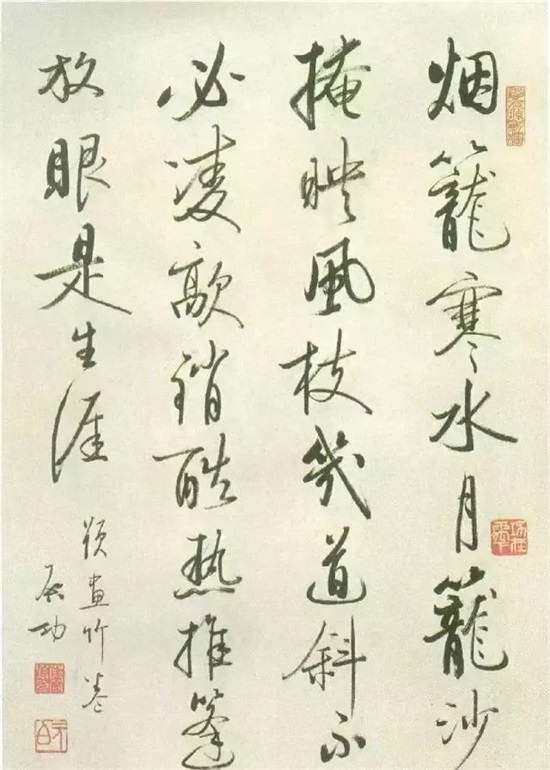 烟籠寒水月籠沙
掩映風枝幾道斜不
必凌歊銷酷热推篷
放眼是生涯
題畫竹卷
启功
元白